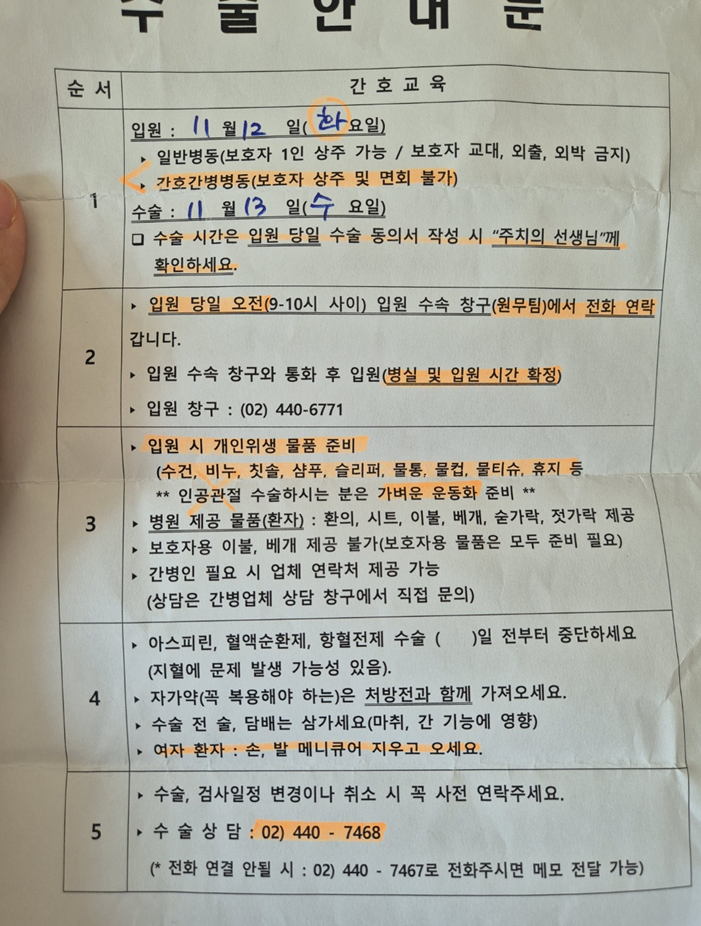 수 술 안 내 문
순 서 간 호 교 육
1
입원 : 11 월 12 일( 화 요일)
▸ 일반병동(보호자 1인 상주 가능 / 보호자 교대, 외출, 외박 금지)
▸ 간호간병병동(보호자 상주 및 면회 불가)
수술 : 11 월 13 일( 수 요일)
❏ 수술 시간은 입원 당일 수술 동의서 작성 시 “주치의 선생님”께
확인하세요.
2
▸ 입원 당일 오전(9-10시 사이) 입원 수속 창구(원무팀)에서 전화 연락
갑니다.
▸ 입원 수속 창구와 통화 후 입원(병실 및 입원 시간 확정)
▸ 입원 창구 : (02) 440-6771
3
▸ 입원 시 개인위생 물품 준비
(수건, 비누, 칫솔, 샴푸, 슬리퍼, 물통, 물컵, 물티슈, 휴지 등
** 인공관절 수술하시는 분은 가벼운 운동화 준비 **
▸ 병원 제공 물품(환자) : 환의, 시트, 이불, 베개, 숟가락, 젓가락 제공
▸ 보호자용 이불, 베개 제공 불가(보호자용 물품은 모두 준비 필요)
▸ 간병인 필요 시 업체 연락처 제공 가능
(상담은 간병업체 상담 창구에서 직접 문의)
4
▸ 아스피린, 혈액순환제, 항혈전제 수술 ( )일 전부터 중단하세요
(지혈에 문제 발생 가능성 있음).
▸ 자가약(꼭 복용해야 하는)은 처방전과 함께 가져오세요.
▸ 수술 전 술, 담배는 삼가세요(마취, 간 기능에 영향)
▸ 여자 환자 : 손, 발 메니큐어 지우고 오세요.
5
▸ 수술, 검사일정 변경이나 취소 시 꼭 사전 연락주세요.
▸ 수 술 상 담 : 02) 440 - 7468
(* 전화 연결 안될 시 : 02) 440 - 7467로 전화주시면 메모 전달 가능)